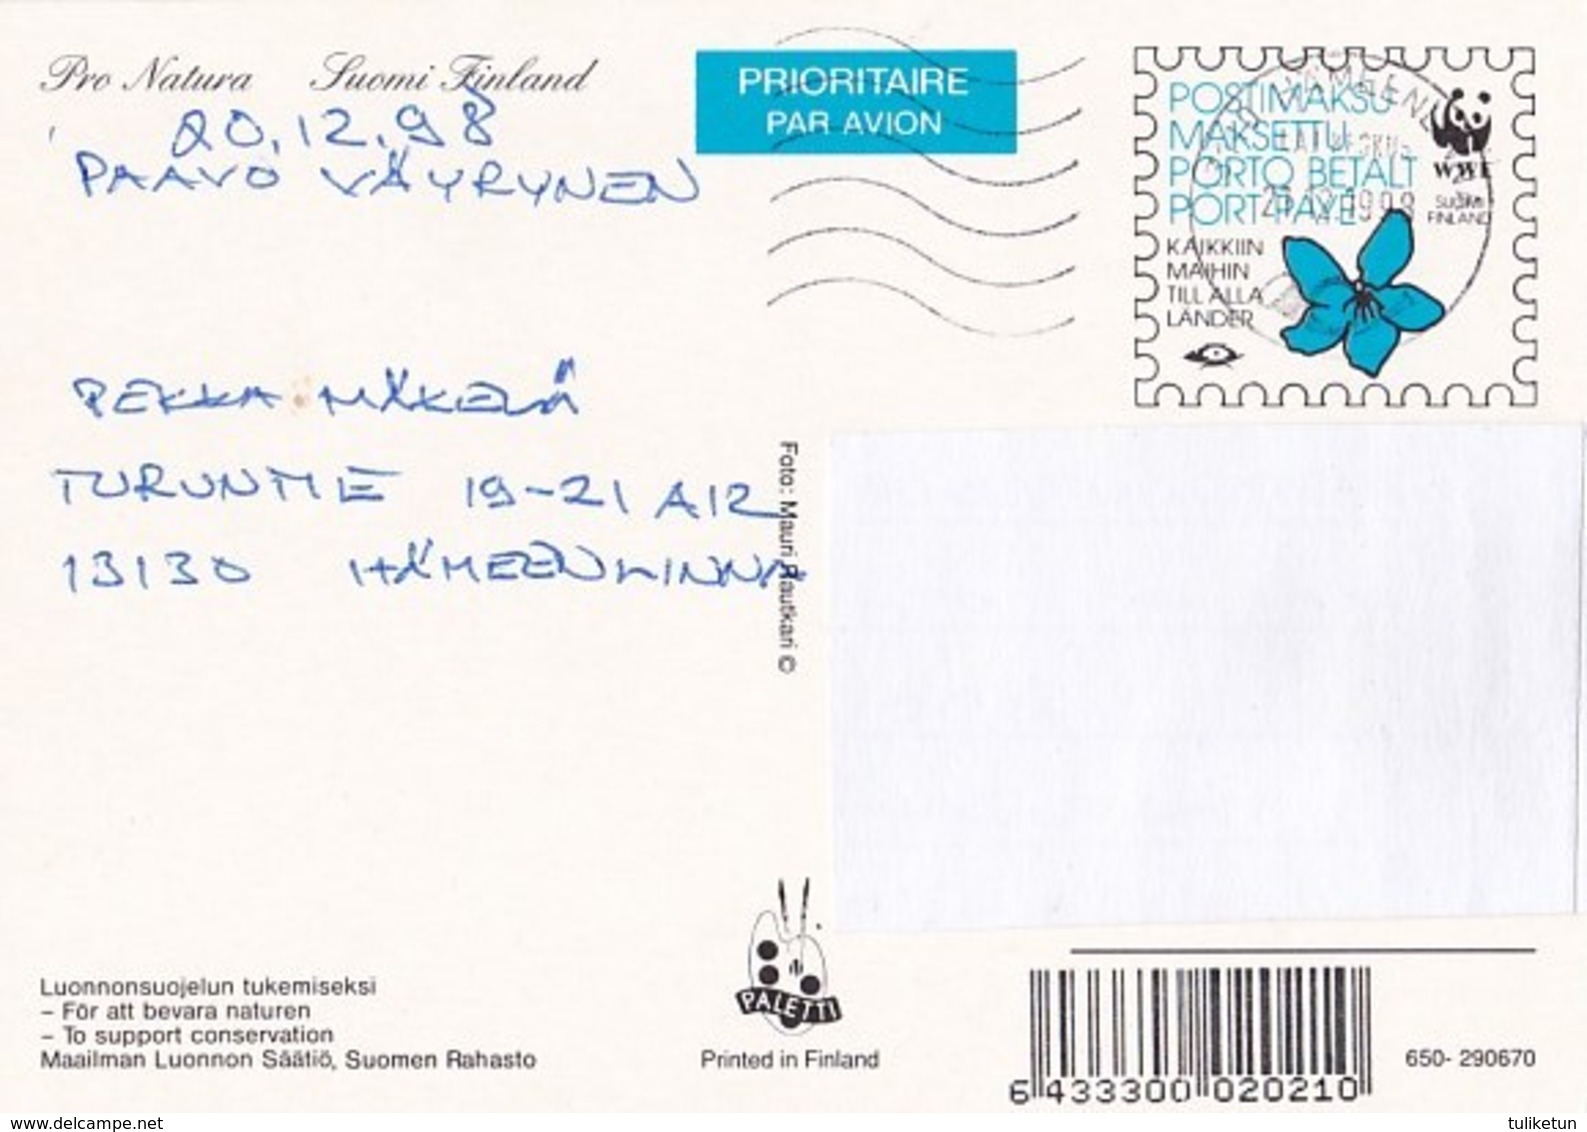 Pro Natura Suomi Finland
20.12.98
PAAVO VÄYRYNEN
PRIORITAIRE
PAR AVION
POSTIMAKSU
MAKSETTU
PORTO BETALT
PORT PAYÉ
KAIKKIIN
MAIHIN
TILL ALLA
LÄNDER
WWF
SUOMI
FINLAND
PEKKA MÄKELÄ
TURUNTIE 19-21 A12
13130 HÄMEENLINNA
Foto: Mauri Rautkari ©
Luonnonsuojelun tukemiseksi
– För att bevara naturen
– To support conservation
Maailman Luonnon Säätiö, Suomen Rahasto
PALETTI
Printed in Finland
6 433300 020210
650- 290670
www.delcampe.net
tuliketun